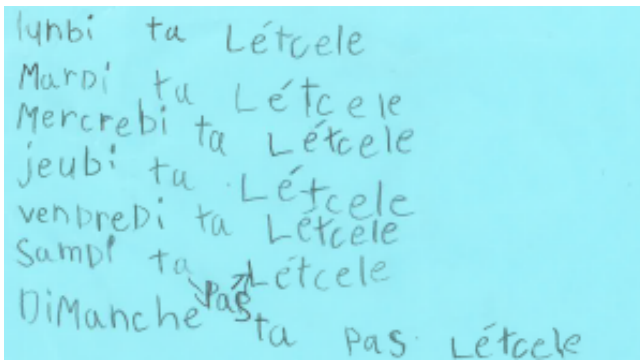 lunbi ta Létcele
MarDi ta Létcele
Mercrebi ta Létcele
jeubi ta Létcele
venDreDi ta Létcele
SamDi ta pas Létcele
DiManche ta pas Létcele